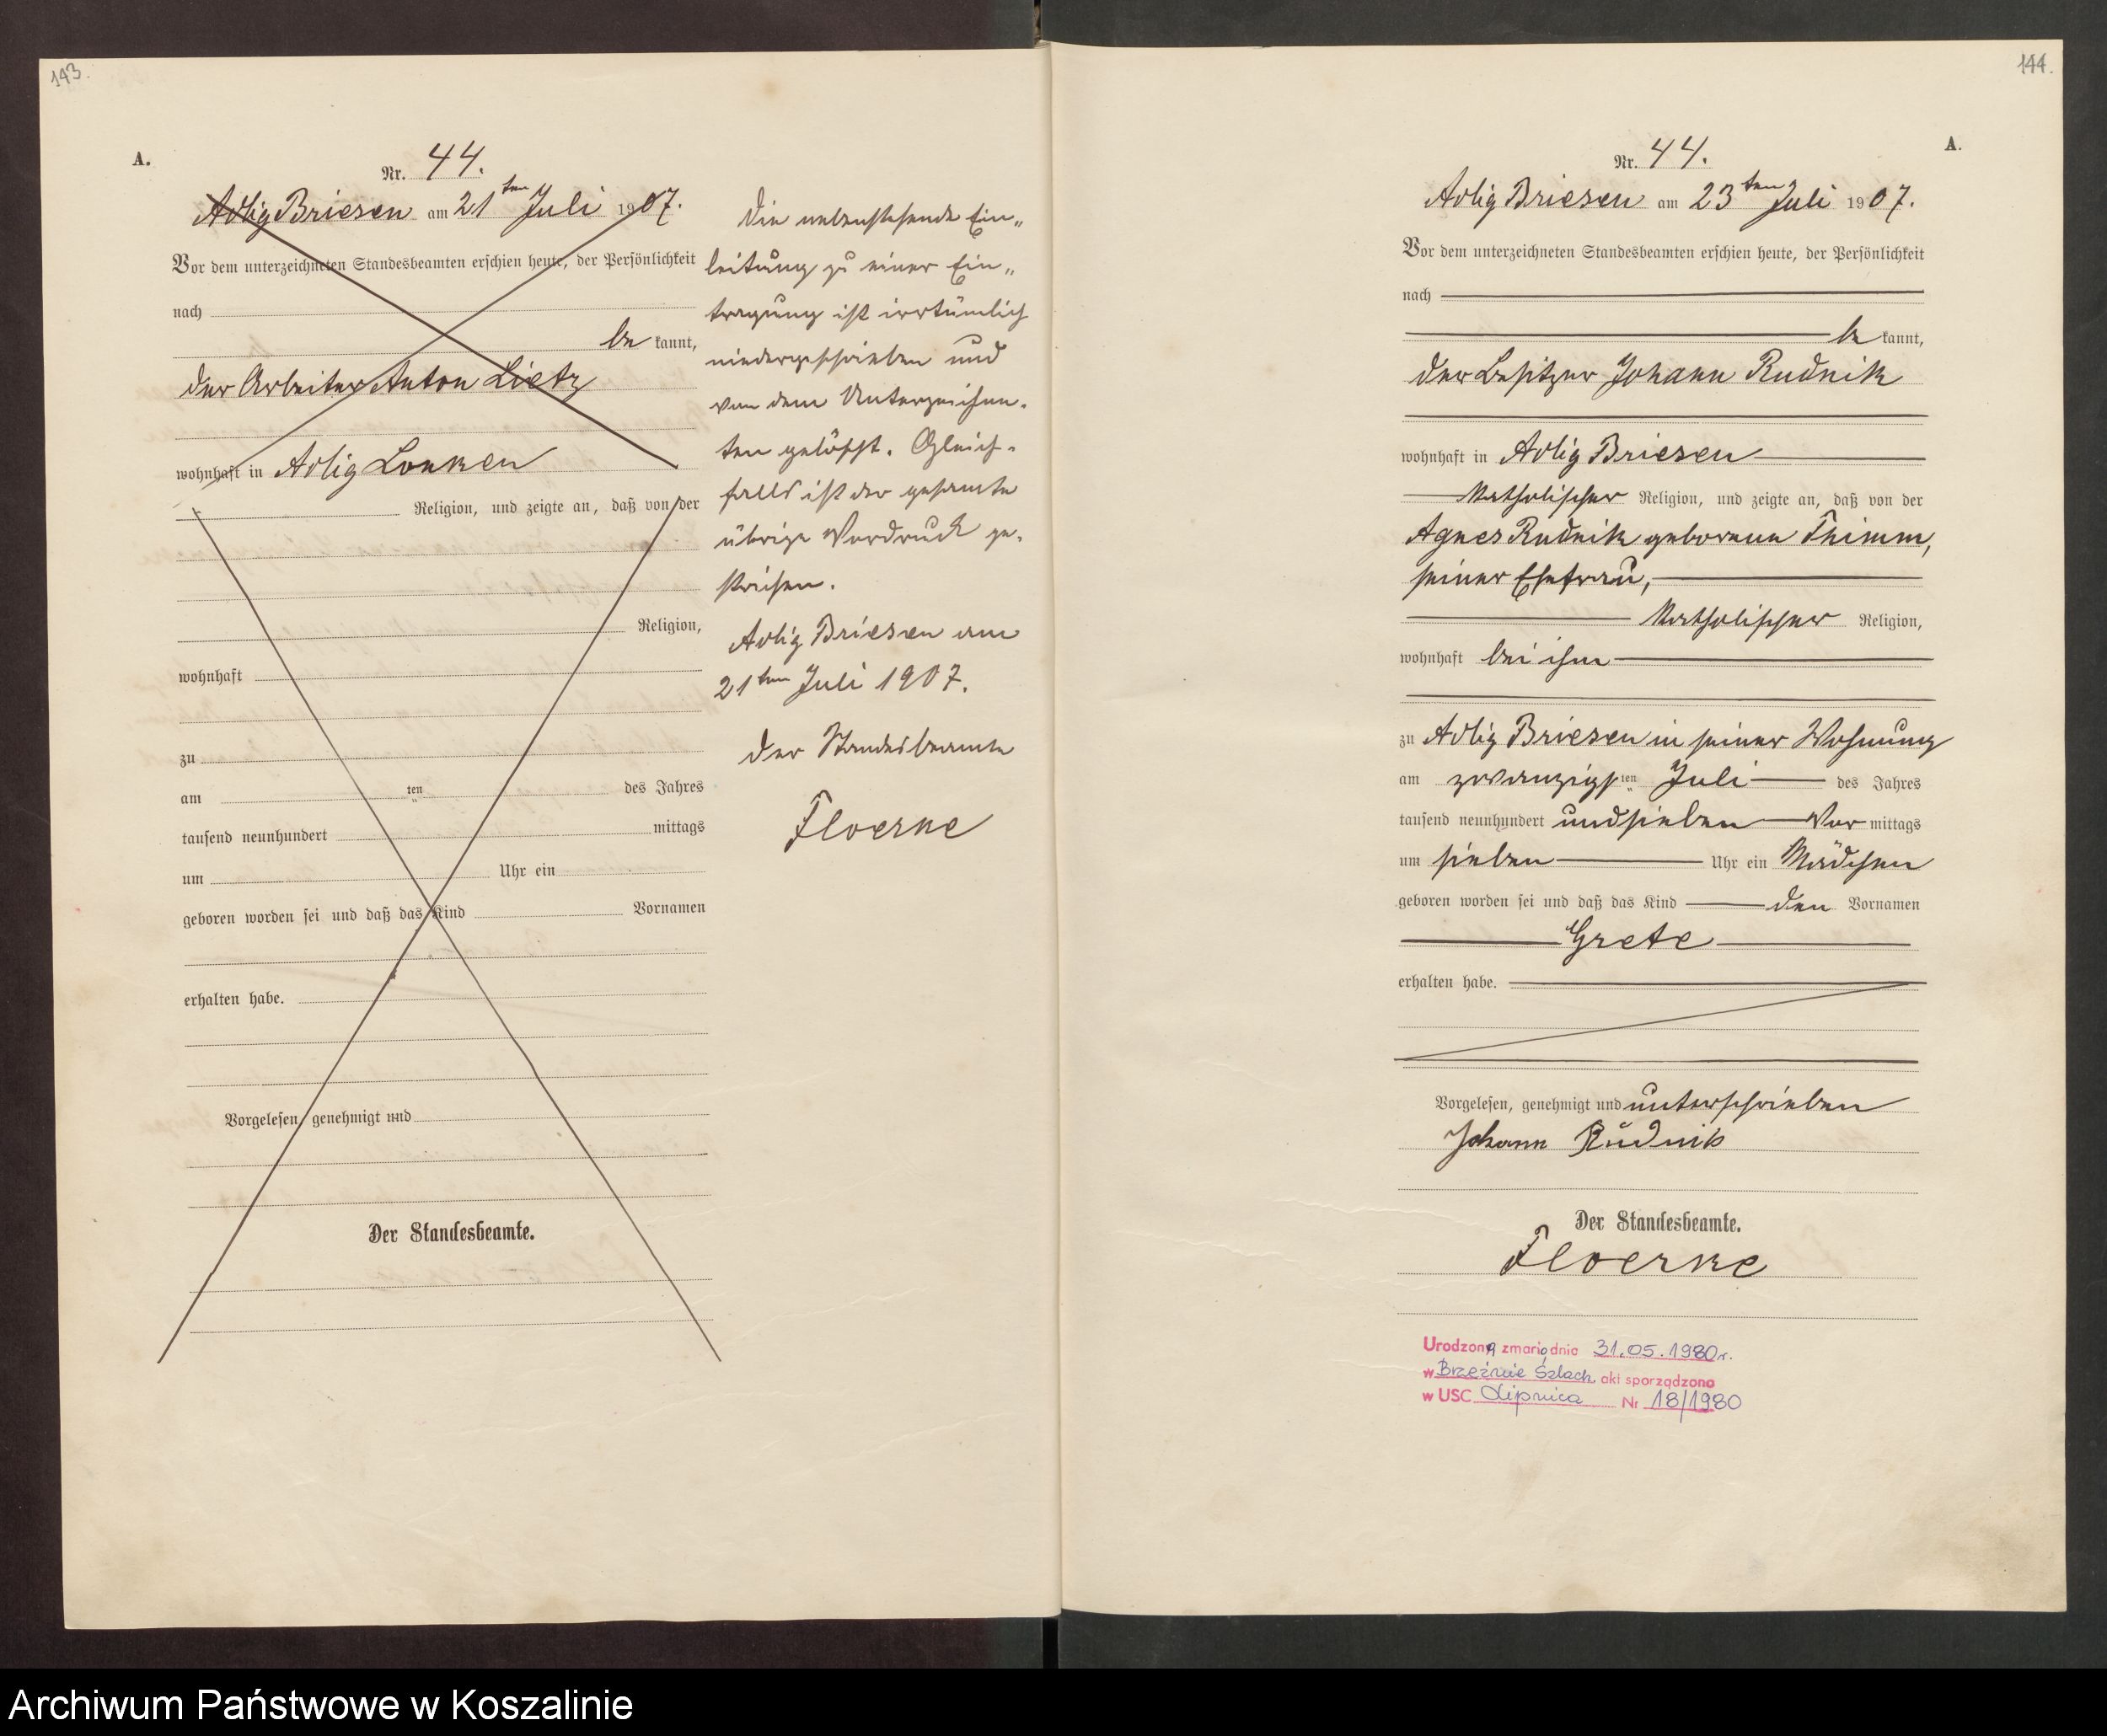 143.
A.
Nr. 44.
Adlig Briesen am 21ten Juli 1907.
Vor dem unterzeichneten Standesbeamten erschien heute, der Persönlichkeit
nach
be kannt,
der Arbeiter Anton Lietz
wohnhaft in Adlig Lonken
Religion, und zeigte an, daß von der
Religion,
wohnhaft
zu
am ten des Jahres
tausend neunhundert mittags
um Uhr ein
geboren worden sei und daß das Kind Vornamen
erhalten habe.
Vorgelesen, genehmigt und
Der Standesbeamte.
Die nebenstehende Ein„
leitung zu einer Ein„
tragung ist irrtümlich
niedergeschrieben und
von dem Unterzeichne-
ten gelöscht. Gleich-
falls ist der gesamte
übrige Vordruck ge-
strichen.
Adlig Briesen am
21ten Juli 1907.
Der Standesbeamte
Floerke
144.
A.
Nr. 44.
Adlig Briesen am 23ten Juli 1907.
Vor dem unterzeichneten Standesbeamten erschien heute, der Persönlichkeit
nach
be kannt,
der Besitzer Johann Rudnik
wohnhaft in Adlig Briesen
katholischer Religion, und zeigte an, daß von der
Agnes Rudnik geborene Thimm,
seiner Ehefrau,
katholischer Religion,
wohnhaft bei ihm
zu Adlig Briesen in seiner Wohnung
am zwanzigsten Juli des Jahres
tausend neunhundert und sieben Vor mittags
um sieben Uhr ein Mädchen
geboren worden sei und daß das Kind den Vornamen
Grete
erhalten habe.
Vorgelesen, genehmigt und unterschrieben
Johann Rudnik
Der Standesbeamte.
Floerke
Urodzona zmarła dnia 31.05.1980r.
w Brzeźnie Szlach. akt sporządzono
w USC Lipnica Nr 18/1980
Archiwum Państwowe w Koszalinie